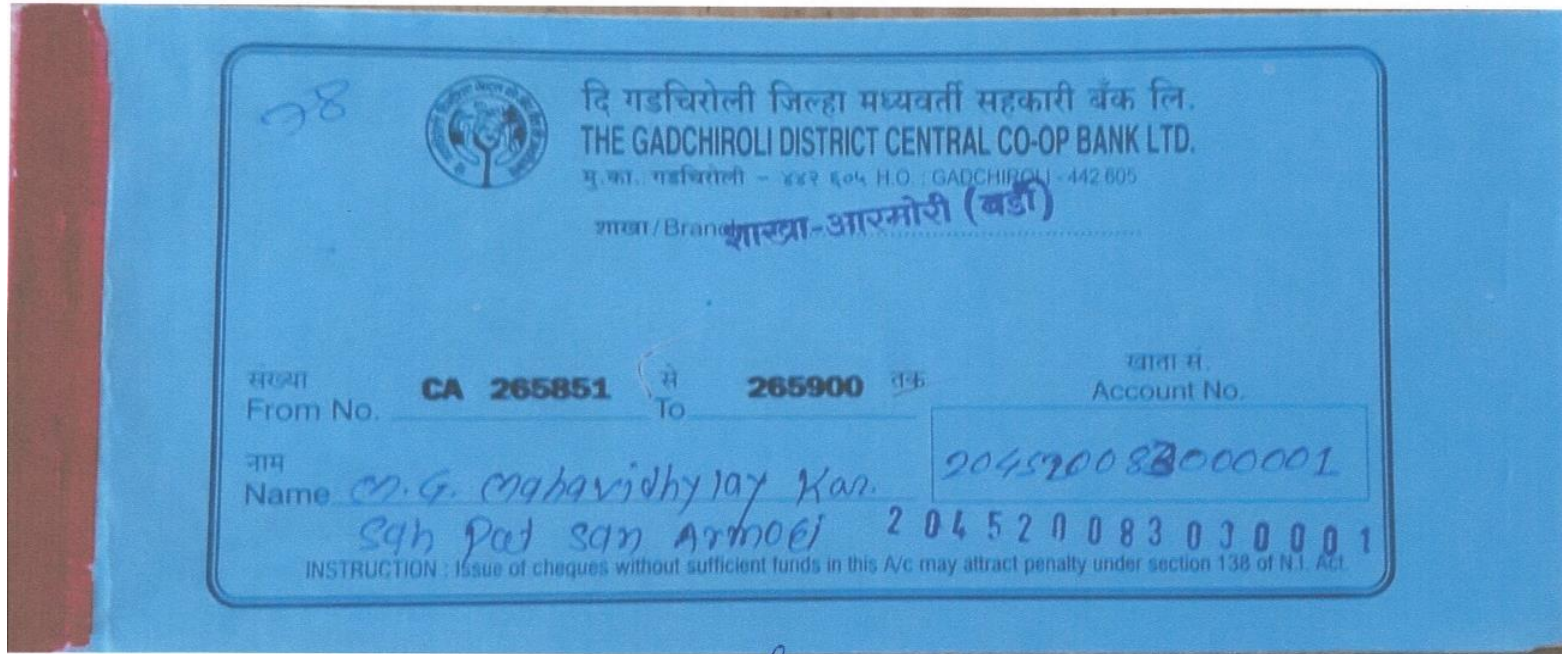 38
दि गडचिरोली जिल्हा मध्यवर्ती सहकारी बँक लि.
THE GADCHIROLI DISTRICT CENTRAL CO-OP BANK LTD.
मु.का. गडचिरोली - ४४२ ६०५ H.O. : GADCHIROLI - 442 605
शाखा/Branch शाखा-आरमोरी (बर्डी)
संख्या CA 265851 से 265900 तक खाता सं.
From No. To Account No.
नाम 204520083000001
Name M.G. Mahavidhylay Kar.
Sah Pat San Armoei 204520083000001
INSTRUCTION : Issue of cheques without sufficient funds in this A/c may attract penalty under section 138 of N.I. Act.